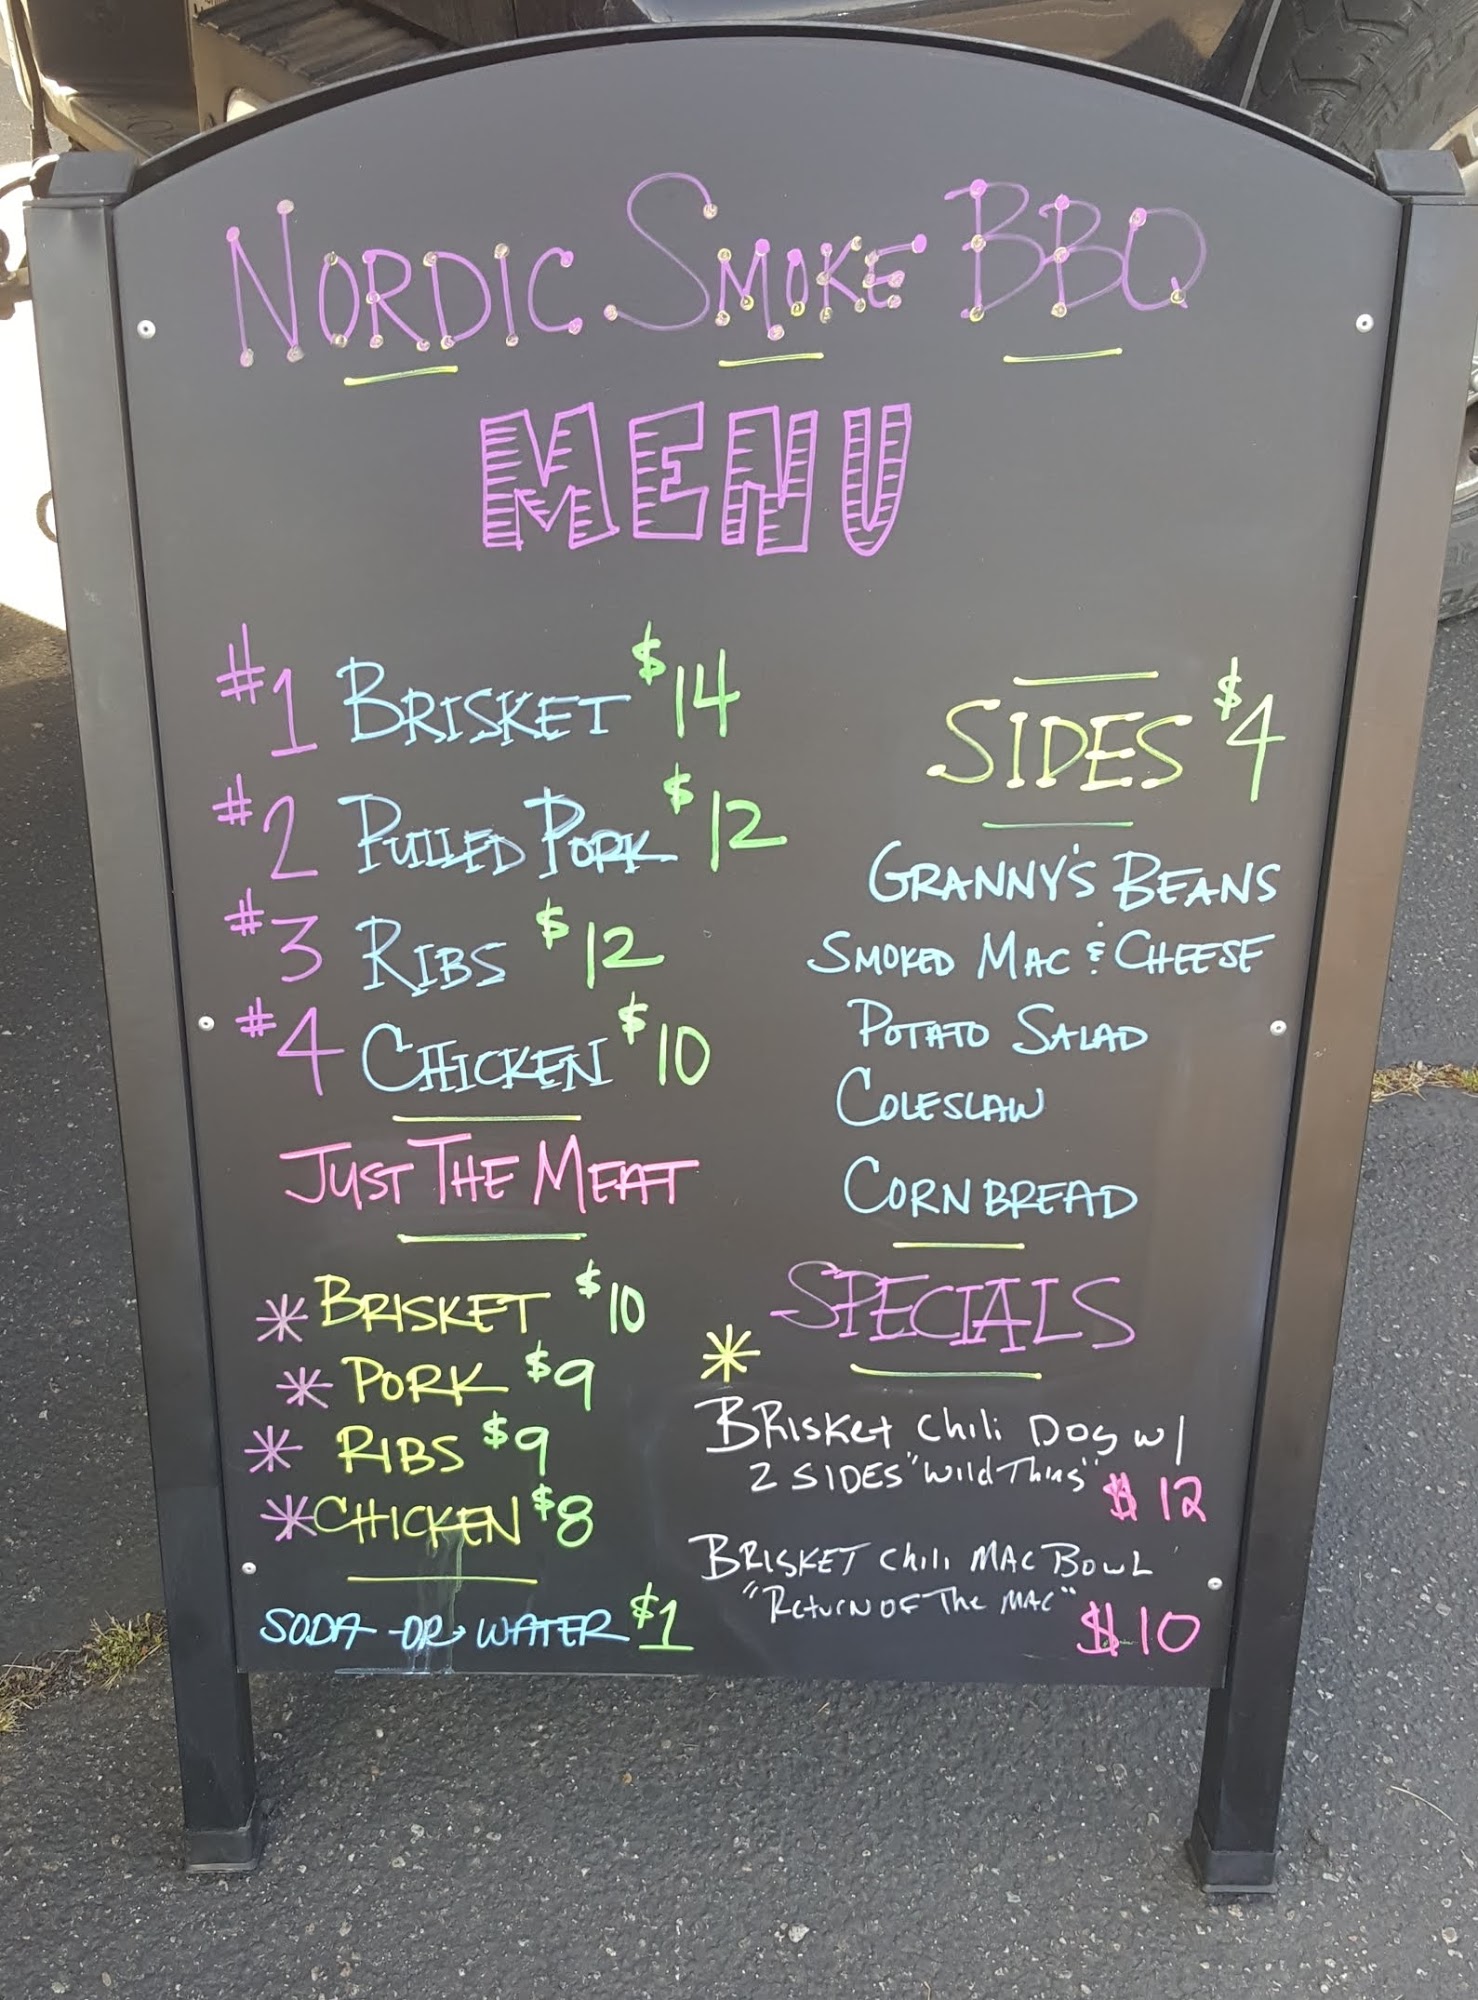 NORDIC SMOKE BBQ
MENU
#1 BRISKET $14
#2 PULLED PORK $12
#3 RIBS $12
#4 CHICKEN $10
JUST THE MEAT
* BRISKET $10
* PORK $9
* RIBS $9
* CHICKEN $8
SODA -OR- WATER $1
SIDES $4
GRANNY'S BEANS
SMOKED MAC & CHEESE
POTATO SALAD
COLESLAW
CORNBREAD
* SPECIALS
BRISKET CHILI DOG W/
2 SIDES "WILD THING" $12
BRISKET CHILI MAC BOWL
"RETURN OF THE MAC" $10